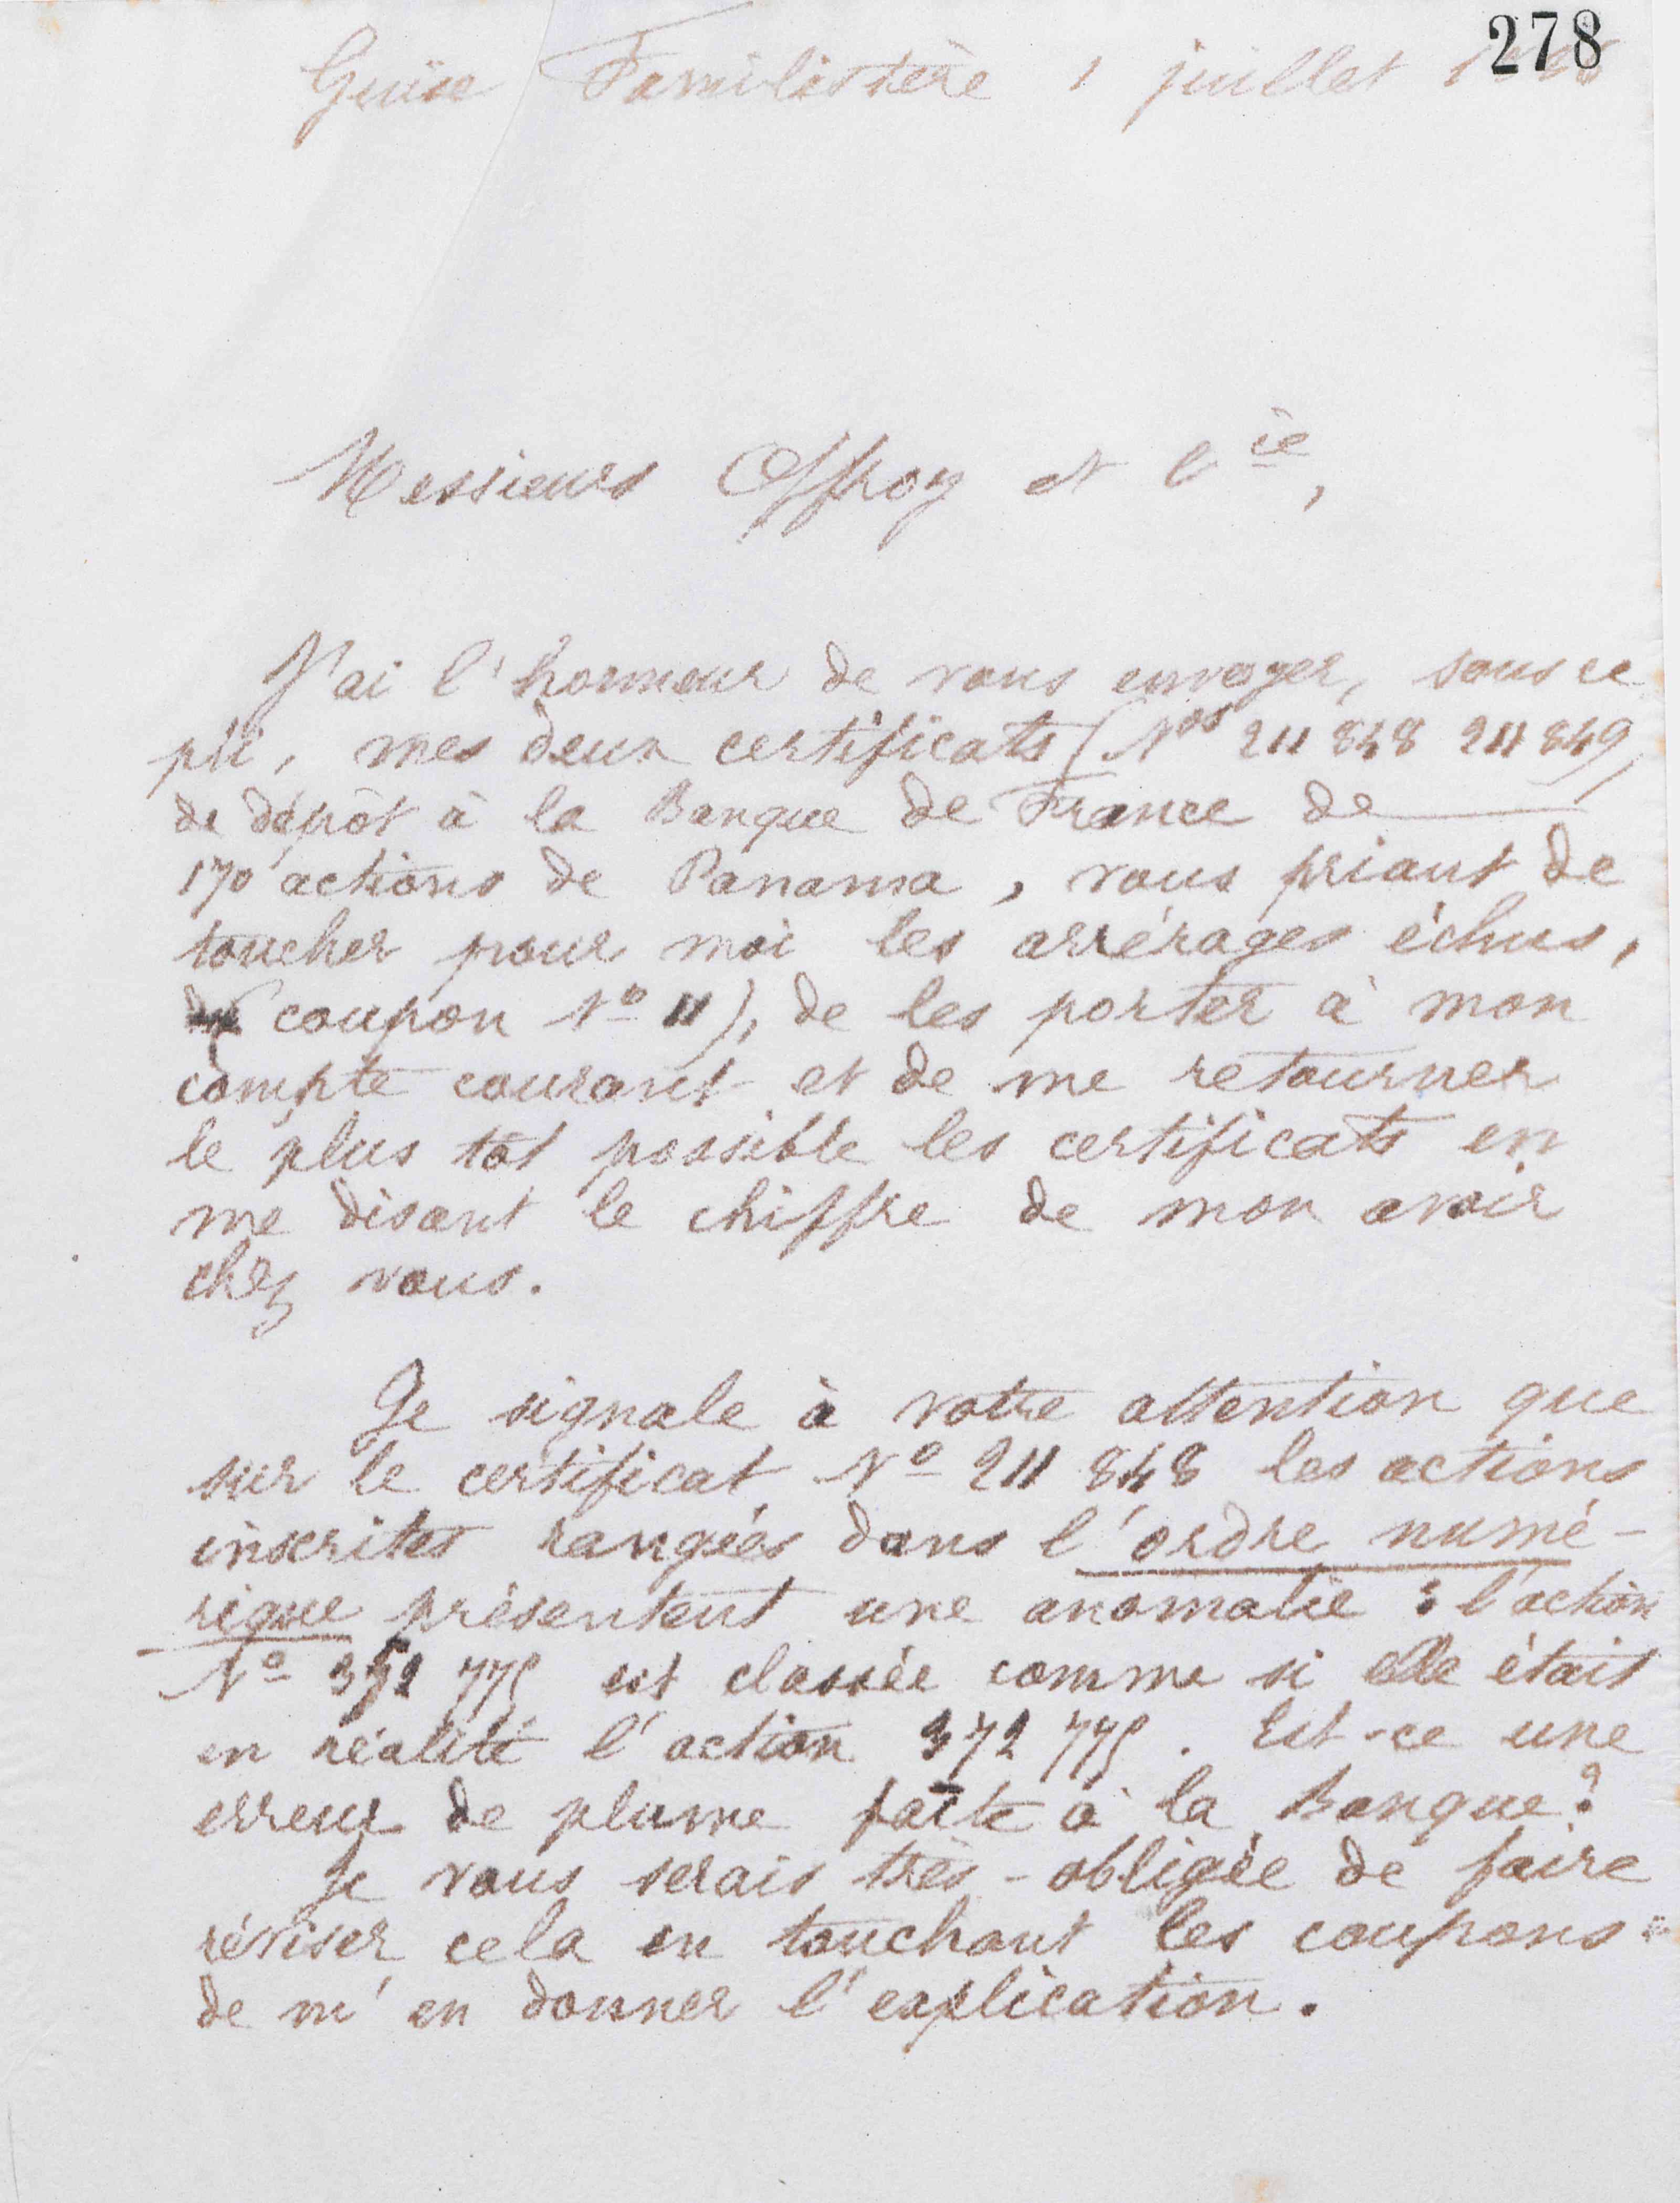 278
Guise Familistère 1 juillet
Messieurs Offroy et Cie,
J'ai l'honneur de vous envoyer, sous ce
pli, mes deux certificats (Nos 211 848 211 849)
de dépôt à la Banque de France de
170 actions de Panama, vous priant de
toucher pour moi les arrérages échus,
coupon No 11), de les porter à mon
compte courant et de me retourner
le plus tôt possible les certificats en
me disant le chiffre de mon avoir
chez vous.
Je signale à votre attention que
sur le certificat No 211 848 les actions
inscrites rangées dans l'ordre numé-
rique présentent une anomalie : l'action
No 352 775 est classée comme si elle était
en réalité l'action 372 775. Est-ce une
erreur de plume faite à la Banque?
Je vous serais très-obligée de faire
réviser cela en touchant les coupons
de m'en donner l'explication.